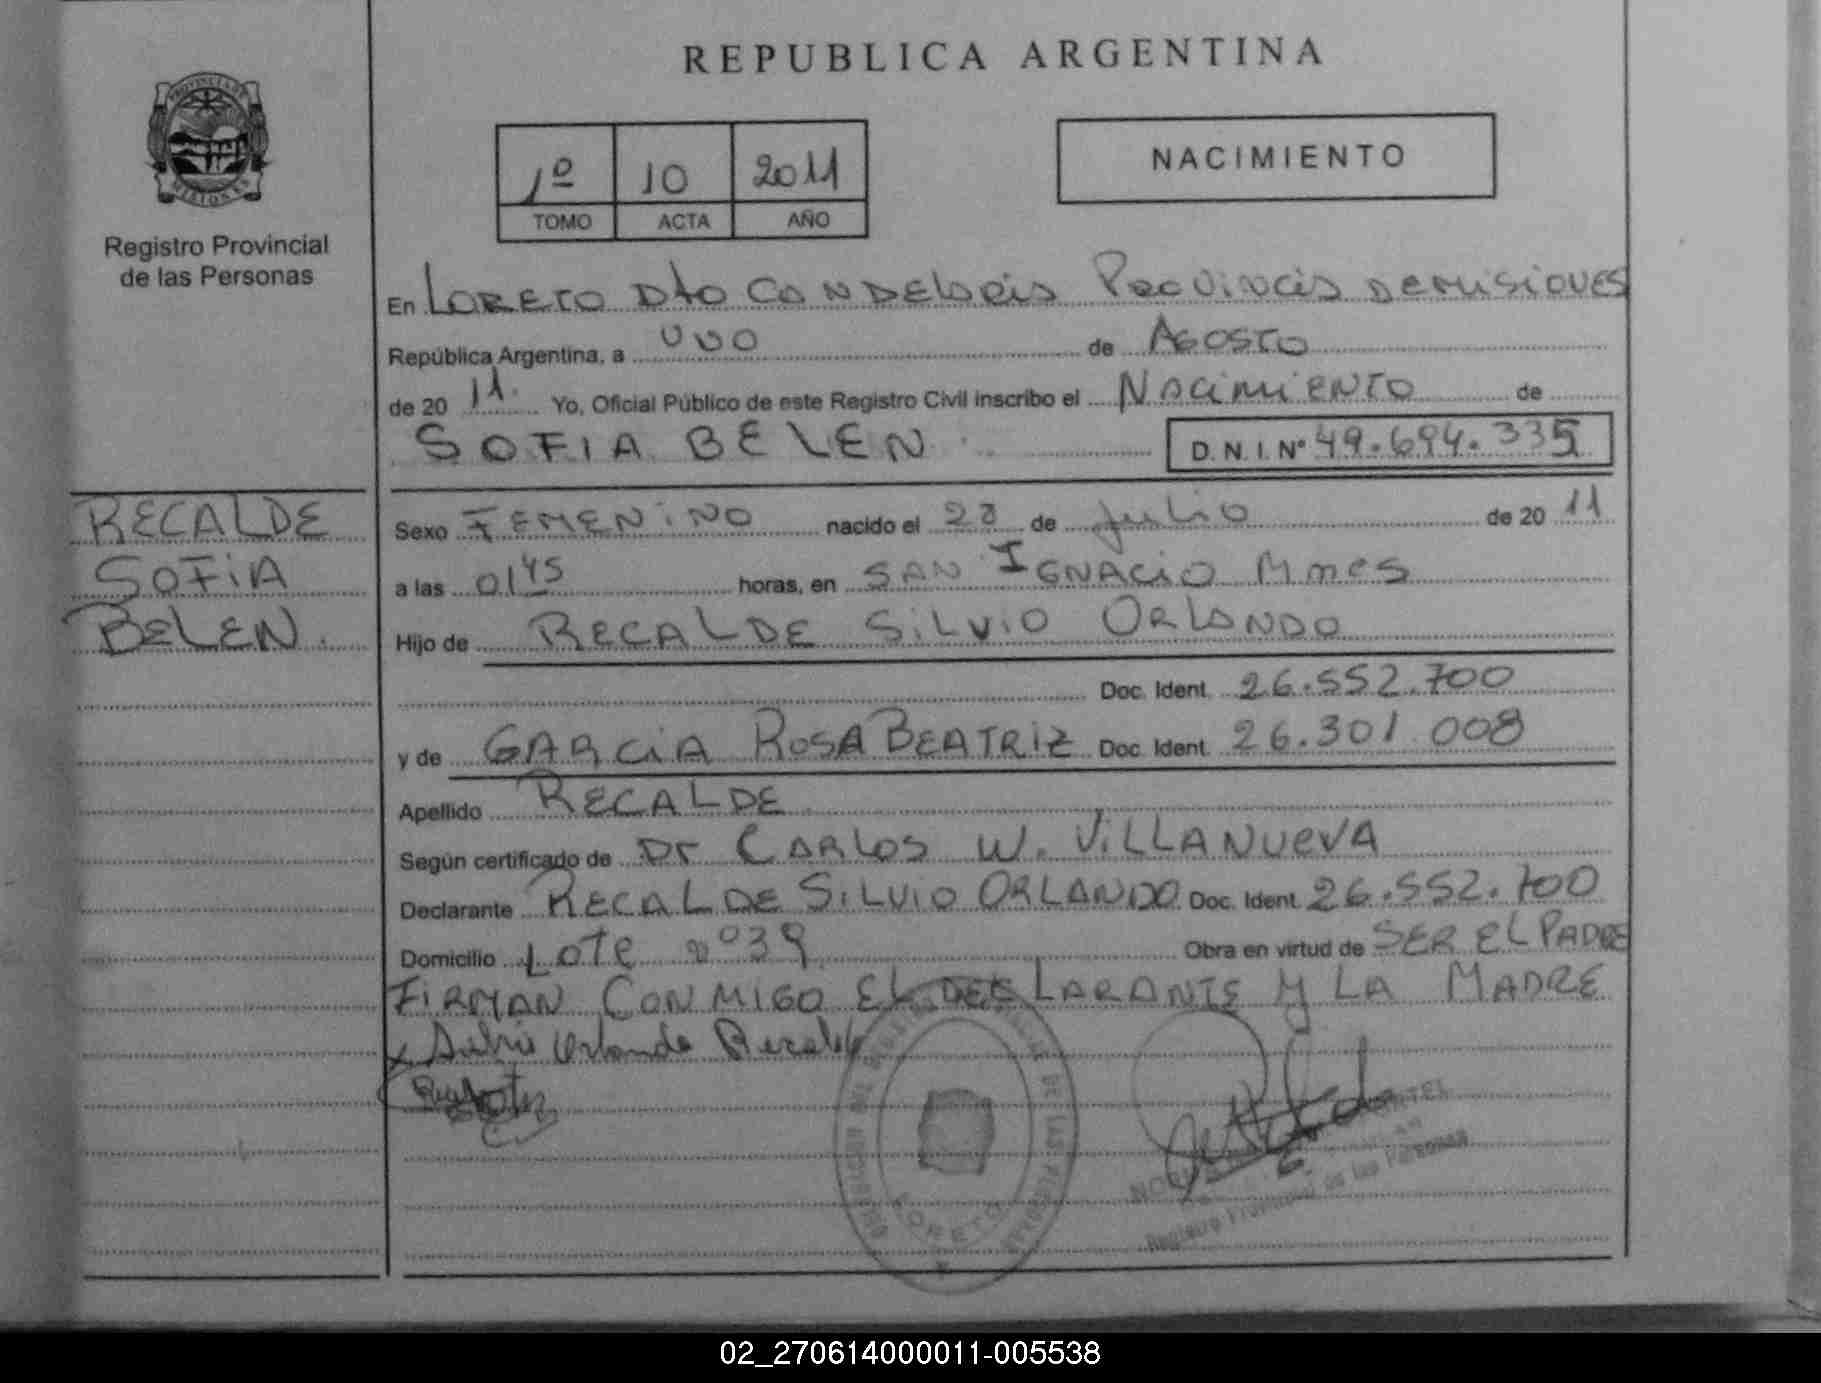 REPUBLICA ARGENTINA
PROVINCIA DE
MISIONES
Registro Provincial
de las Personas
1º 10 2011
TOMO ACTA AÑO
NACIMIENTO
En LORETO Dto CANDELARIA PROVINCIA DE MISIONES
República Argentina, a UNO de AGOSTO
de 20 11. Yo, Oficial Público de este Registro Civil inscribo el NACIMIENTO de
SOFIA BELEN D.N.I. Nº 49.694.335
RECALDE
SOFIA
BELEN.
Sexo FEMENINO nacido el 28 de Julio de 20 11
a las 01 45 horas, en SAN IGNACIO Mnes
Hijo de RECALDE SILVIO ORLANDO
Doc. Ident. 26.552.700
y de GARCIA ROSA BEATRIZ Doc. Ident. 26.301.008
Apellido RECALDE
Según certificado de Dr CARLOS W. VILLANUEVA
Declarante RECALDE SILVIO ORLANDO Doc. Ident. 26.552.700
Domicilio LOTE nº 39 Obra en virtud de SER EL PADRE
FIRMAN CONMIGO EL DECLARANTE Y LA MADRE
x Silvio Orlando Recalde
LORETO
Registro Provincial de las Personas
02_270614000011-005538